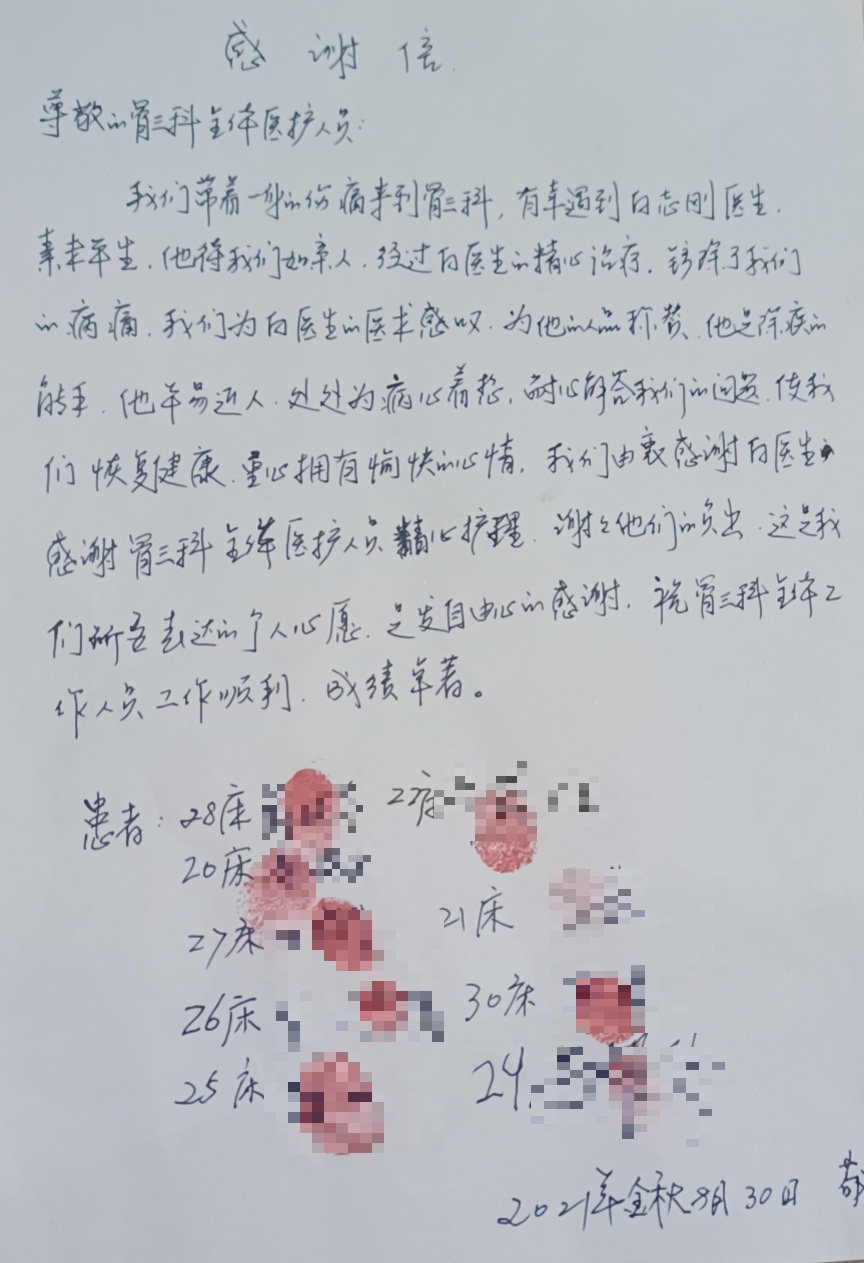 感谢信
尊敬的骨三科全体医护人员:
我们带着一身的伤病来到骨三科,有幸遇到白志刚医生.
素未平生.他待我们如亲人.经过白医生的精心治疗.解除了我们
的病痛.我们为白医生的医术感叹.为他的人品称赞.他是除病的
能手.他平易近人.处处为病心着想,耐心解答我们的问题.使我
们恢复健康.重心拥有愉快的心情,我们由衷感谢白医生
感谢骨三科全体医护人员精心护理.谢谢他们的负出.这是我
们所要表达的个人心愿.是发自由心的感谢.祝骨三科全体工
作人员工作顺利.成绩卓著。
患者:28床 22床
20床
21床
27床
26床 30床
25床 24.
2021年金秋8月30日